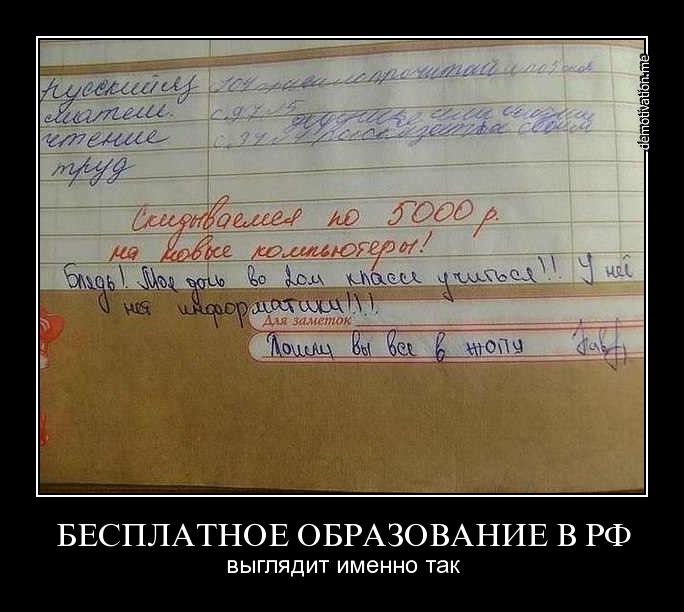 русский яз
матем. с. 97 №5
чтение с. 34
труд
Скидываемся по 5000 р.
на новые компьютеры!
Блядь! Моя дочь во 2ом классе учиться!! У неё
нет информатики!!!
Для заметок
Пошли вы все в жопу
demotivation.me
БЕСПЛАТНОЕ ОБРАЗОВАНИЕ В РФ
выглядит именно так